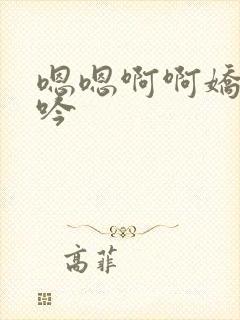 嗯嗯啊啊嬌
吟
高菲